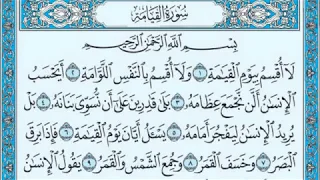 سُورَةُ القِيَامَةِ
بِسْمِ اللَّهِ الرَّحْمَٰنِ الرَّحِيمِ
لَا أُقْسِمُ بِيَوْمِ الْقِيَٰمَةِ ١ وَلَا أُقْسِمُ بِالنَّفْسِ اللَّوَّامَةِ ٢ أَيَحْسَبُ
الْإِنسَٰنُ أَلَّن نَّجْمَعَ عِظَامَهُ ٣ بَلَىٰ قَٰدِرِينَ عَلَىٰ أَن نُّسَوِّىَ بَنَانَهُ ٤ بَلْ
يُرِيدُ الْإِنسَٰنُ لِيَفْجُرَ أَمَامَهُ ٥ يَسْـَٔلُ أَيَّانَ يَوْمُ الْقِيَٰمَةِ ٦ فَإِذَا بَرِقَ
الْبَصَرُ ٧ وَخَسَفَ الْقَمَرُ ٨ وَجُمِعَ الشَّمْسُ وَالْقَمَرُ ٩ يَقُولُ الْإِنسَٰنُ